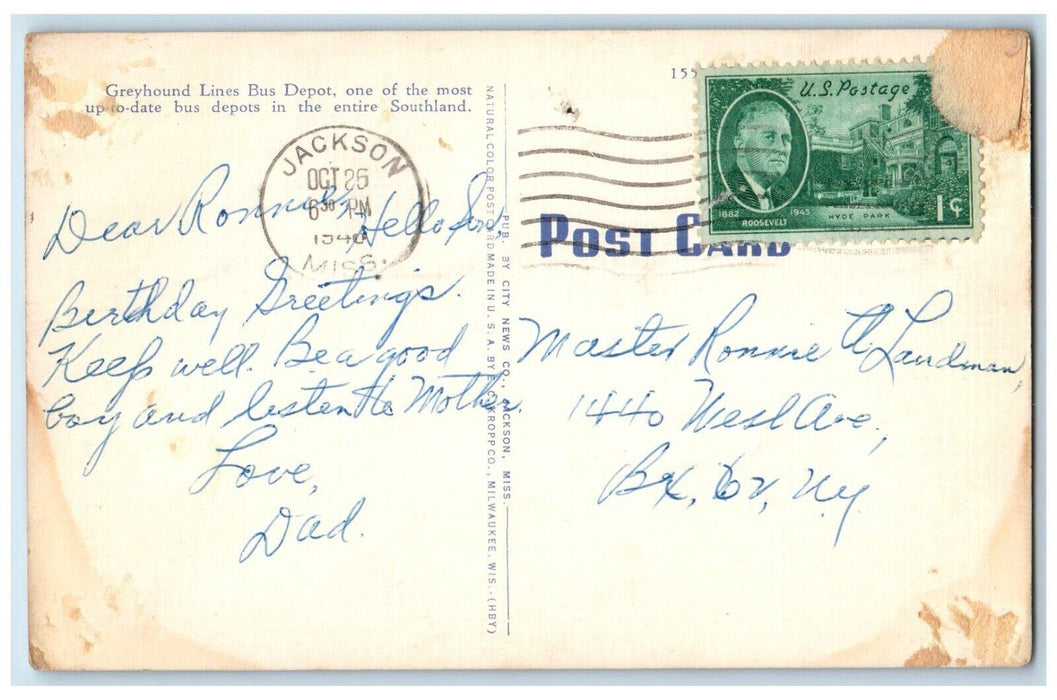 Greyhound Lines Bus Depot, one of the most
up-to-date bus depots in the entire Southland.
JACKSON
OCT 26
6 30 PM
1946
MISS.
Dear Ronnie, Hello Son,
Birthday Greetings.
Keep well. Be a good
boy and listen to Mother.
Love,
Dad.
NATURAL COLOR POST CARD MADE IN U.S.A. BY E. C. KROPP CO., MILWAUKEE, WIS.-(HBY)
PUB. BY CITY NEWS CO., JACKSON, MISS.
155
U.S. Postage
1882 1945
ROOSEVELT
HYDE PARK
1¢
POST CARD
Master Ronnie Landman,
1440 West Ave.,
Bx, 62, NY